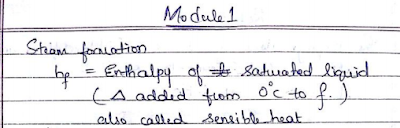 Module 1
Steam formation
hf = Enthalpy of saturated liquid
(Δ added from 0°C to f.)
also called sensible heat